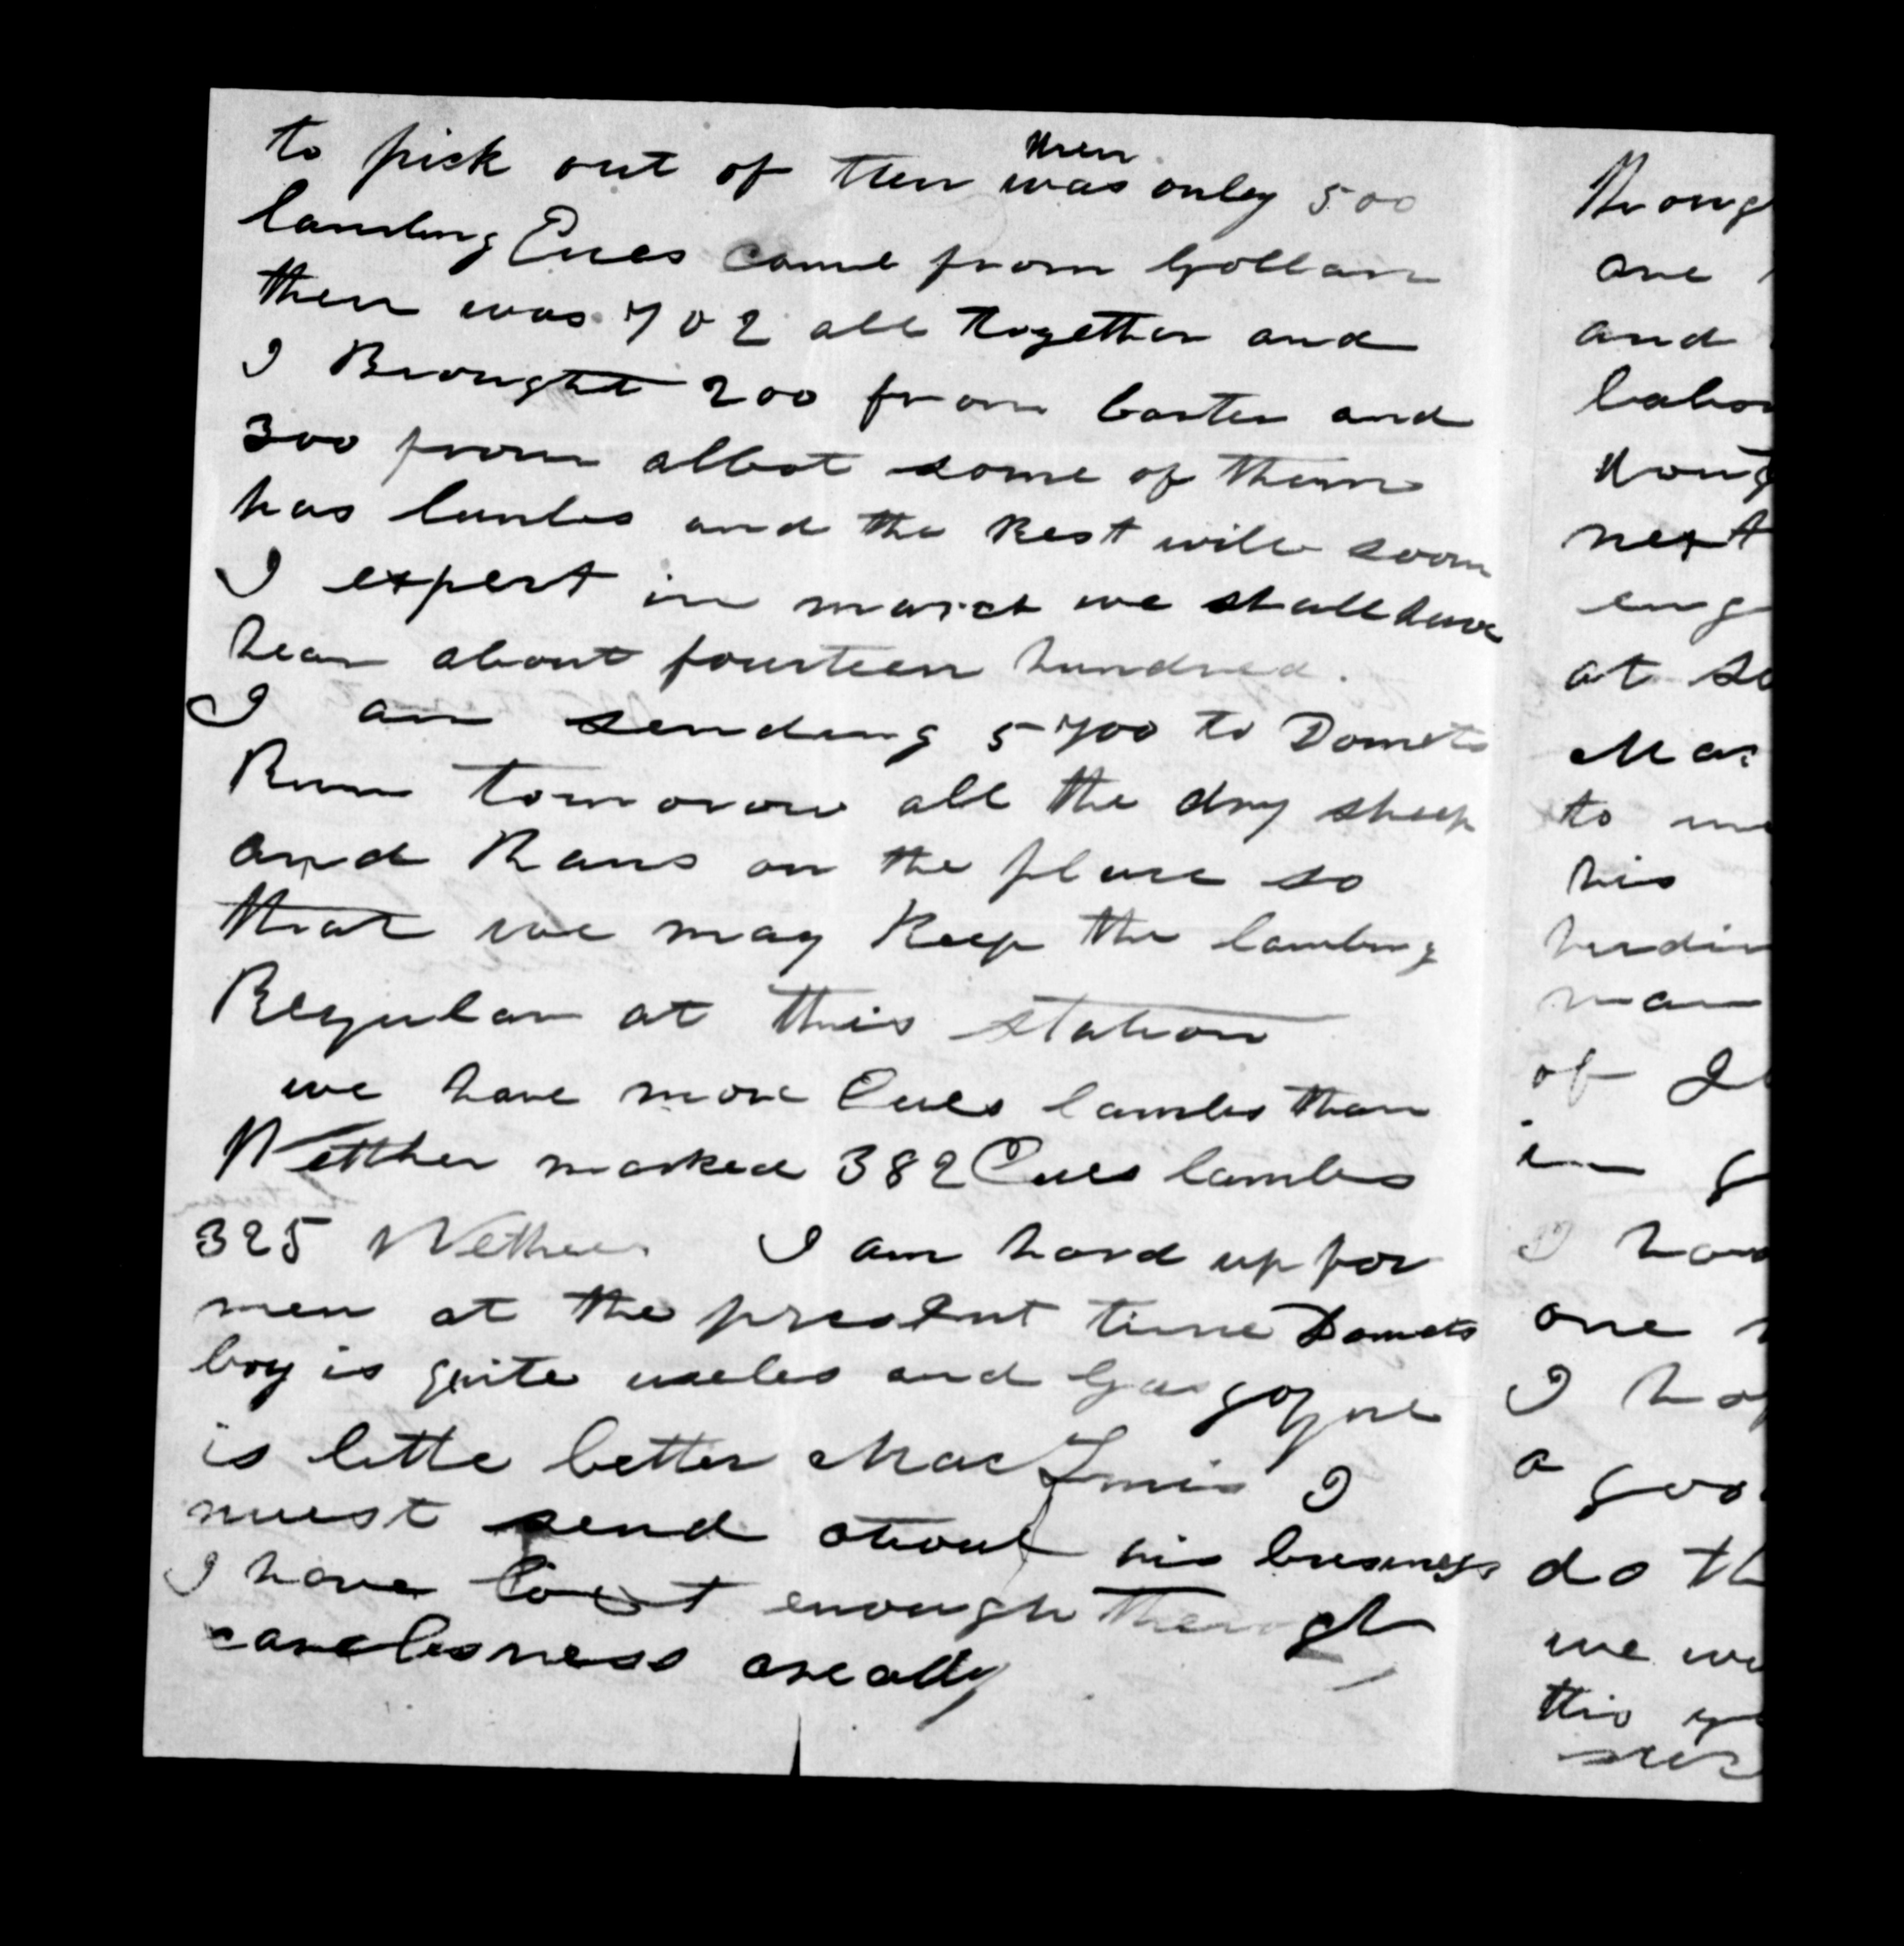 to pick out of then was only 500
then
lambing Eues came from Gollan
then was 702 all together and
I Brought 200 from Carter and
300 from albot some of them
has lambs and the Rest will soon
I expert in march we shall have
hear about fourteen hundred.
I am sending 5700 to Domets
Run tomorow all the dry sheep
and Rams on the place so
that we may Keep the lambing
Regular at this station
we have more Eues lambs than
Wetther marked 382 Eues lambs
325 Wethers I am hard up for
men at the present time Domets
boy is quite useles and
is little better Mac I
must send about his business
I have lost enough through
carelesness
Broug
are
and
labou
next
eng
at
Mar
to
his
man
of
in
I have
one
I
a goo
do th
we
this